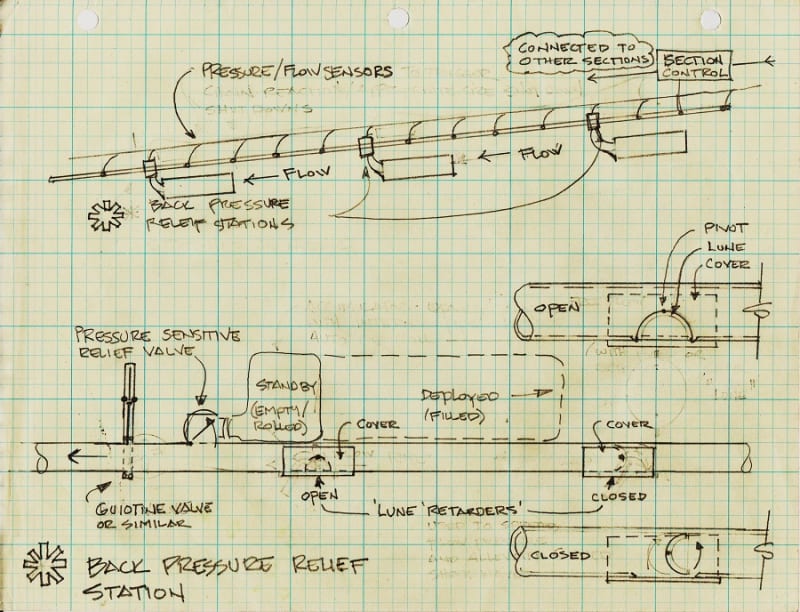 CONNECTED TO
OTHER SECTIONS
SECTION
CONTROL
PRESSURE/FLOW SENSORS
SHUTDOWNS
FLOW
FLOW
BACK PRESSURE
RELIEF STATIONS
PIVOT
LUNE
COVER
OPEN
PRESSURE SENSITIVE
RELIEF VALVE
STANDBY
(EMPTY/
ROLLED)
DEPLOYED
(FILLED)
COVER
COVER
OPEN
'LUNE 'RETARDERS'
CLOSED
GUIOTINE VALVE
OR SIMILAR
CLOSED
BACK PRESSURE RELIEF
STATION